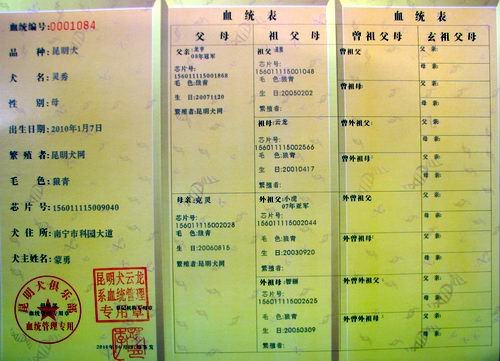 血统编号:0001084
品 种:昆明犬
犬 名:灵秀
性 别:母
出生日期:2010年1月7日
繁 殖 者:昆明犬网
毛 色:狼青
芯 片 号:156011115009040
犬 住 所:南宁市科园大道
犬主姓名:蒙勇
昆明犬俱乐部
血统管理专用章
血统管理专用
昆明犬云龙
系血统管理
专用章
血统表
父母
祖父母
父亲:龙军
08年冠军
芯片号:
156011115001868
毛 色:狼青
生 日:20071120
繁殖者:昆明犬网
祖父:
芯片号:
156011115001048
毛 色:狼青
生 日:20050202
繁殖者:
祖母:云龙
芯片号:
156011115002566
毛 色:狼青
生 日:20010417
繁殖者:
母亲:克灵
芯片号:
156011115002028
毛 色:狼青
生 日:20060815
繁殖者:昆明犬网
外祖父:小虎
07年亚军
芯片号:
156011115002044
毛 色:狼青
生 日:20030920
繁殖者:
外祖母:智丽
芯片号:
156011115002625
毛 色:狼青
生 日:20050309
繁殖者:
血统表
曾祖父母
玄祖父母
曾祖父:
父 亲:
母 亲:
曾祖母:
父 亲:
母 亲:
曾外祖父:
父 亲:
母 亲:
曾外祖母:
父 亲:
母 亲:
外曾祖父:
父 亲:
母 亲:
外曾祖母:
父 亲:
母 亲:
外曾外祖父:
父 亲:
母 亲:
外曾外祖母:
父 亲:
母 亲: